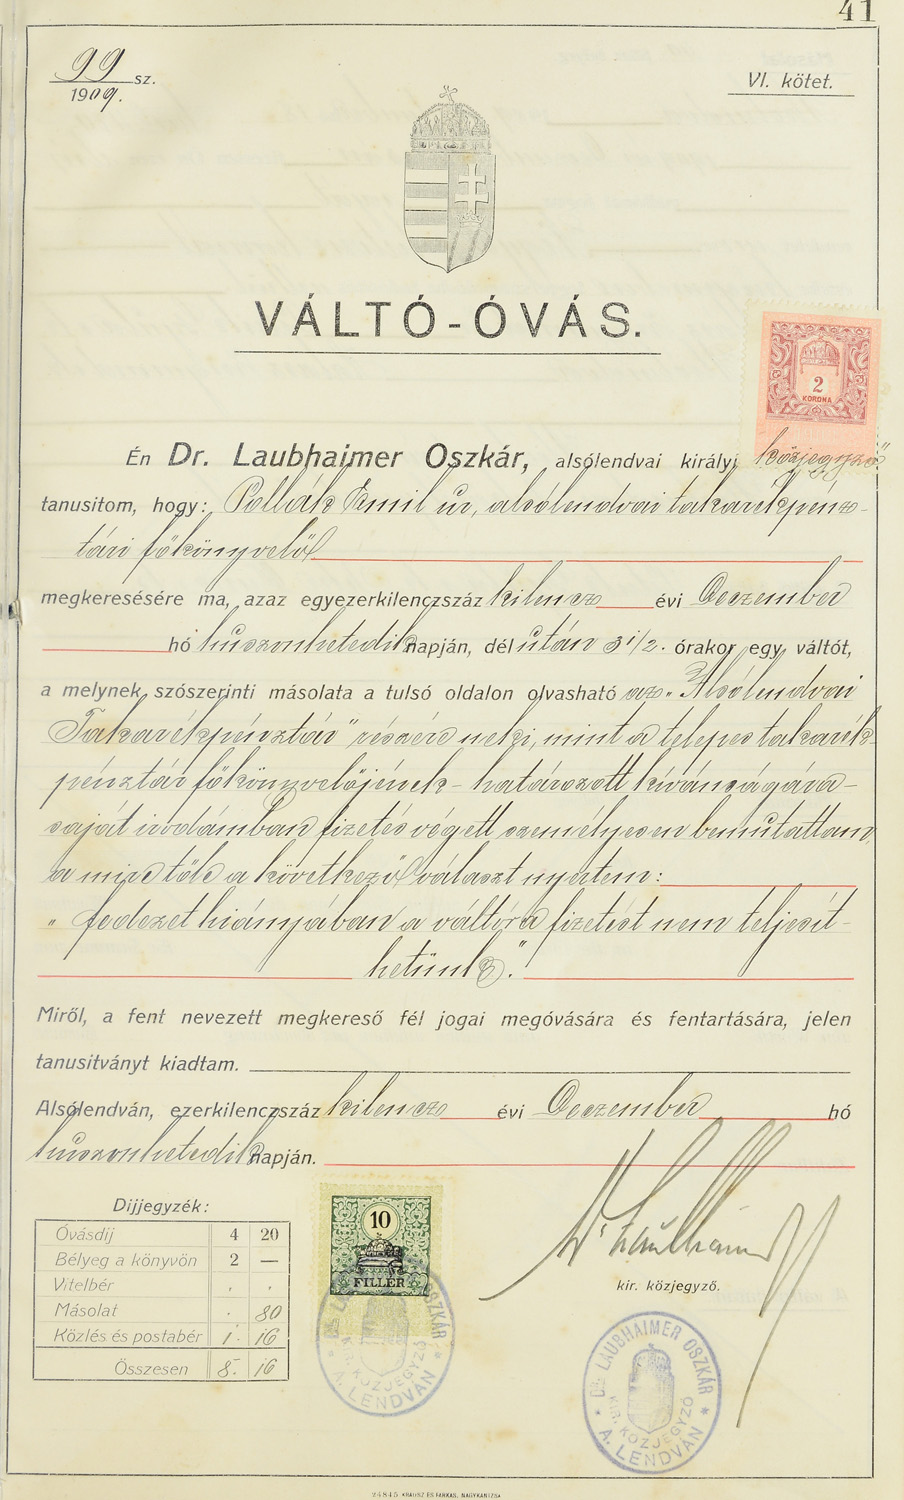 41
99 sz.
1909.
VI. kötet.
VÁLTÓ-ÓVÁS.
2
KORONA
Én Dr. Laubhaimer Oszkár, alsólendvai királyi közjegyző
tanusitom, hogy: Pollák Ernil úr, alsólendvai takarékpénz-
tári főkönyvelő
megkeresésére ma, azaz egyezerkilenczszáz kilencz évi Deczember
hó huszonhetedik napján, dél után 3 1/2. órakor egy váltót,
a melynek szószerinti másolata a tulsó oldalon olvasható az „Alsólendvai
Takarékpénztár" részére neki, mint a telepes takarék-
pénztár főkönyvelőjének - határozott kívánságára -
saját irodámban fizetés végett személyesen bemutattam,
a mire tőle a következő választ nyertem:
„fedezet hiányában a váltóra fizetést nem teljesít-
hetünk."
Miről, a fent nevezett megkereső fél jogai megóvására és fentartására, jelen
tanusitványt kiadtam.
Alsólendván, ezerkilenczszáz kilencz évi Deczember hó
huszonhetedik napján.
Dijjegyzék:
Óvásdij 4 20
Bélyeg a könyvön 2 —
Vitelbér . .
Másolat . 80
Közlés és postabér 1. 16
Összesen 8. 16
10
FILLÉR
Dr. LAUBHAIMER OSZKÁR
KIR. KÖZJEGYZŐ
A. LENDVÁN
Dr Laubhaimer
kir. közjegyző.
Dr. LAUBHAIMER OSZKÁR
KIR. KÖZJEGYZŐ
A. LENDVÁN
24845 KRAUSZ ÉS FARKAS, NAGYKANIZSA